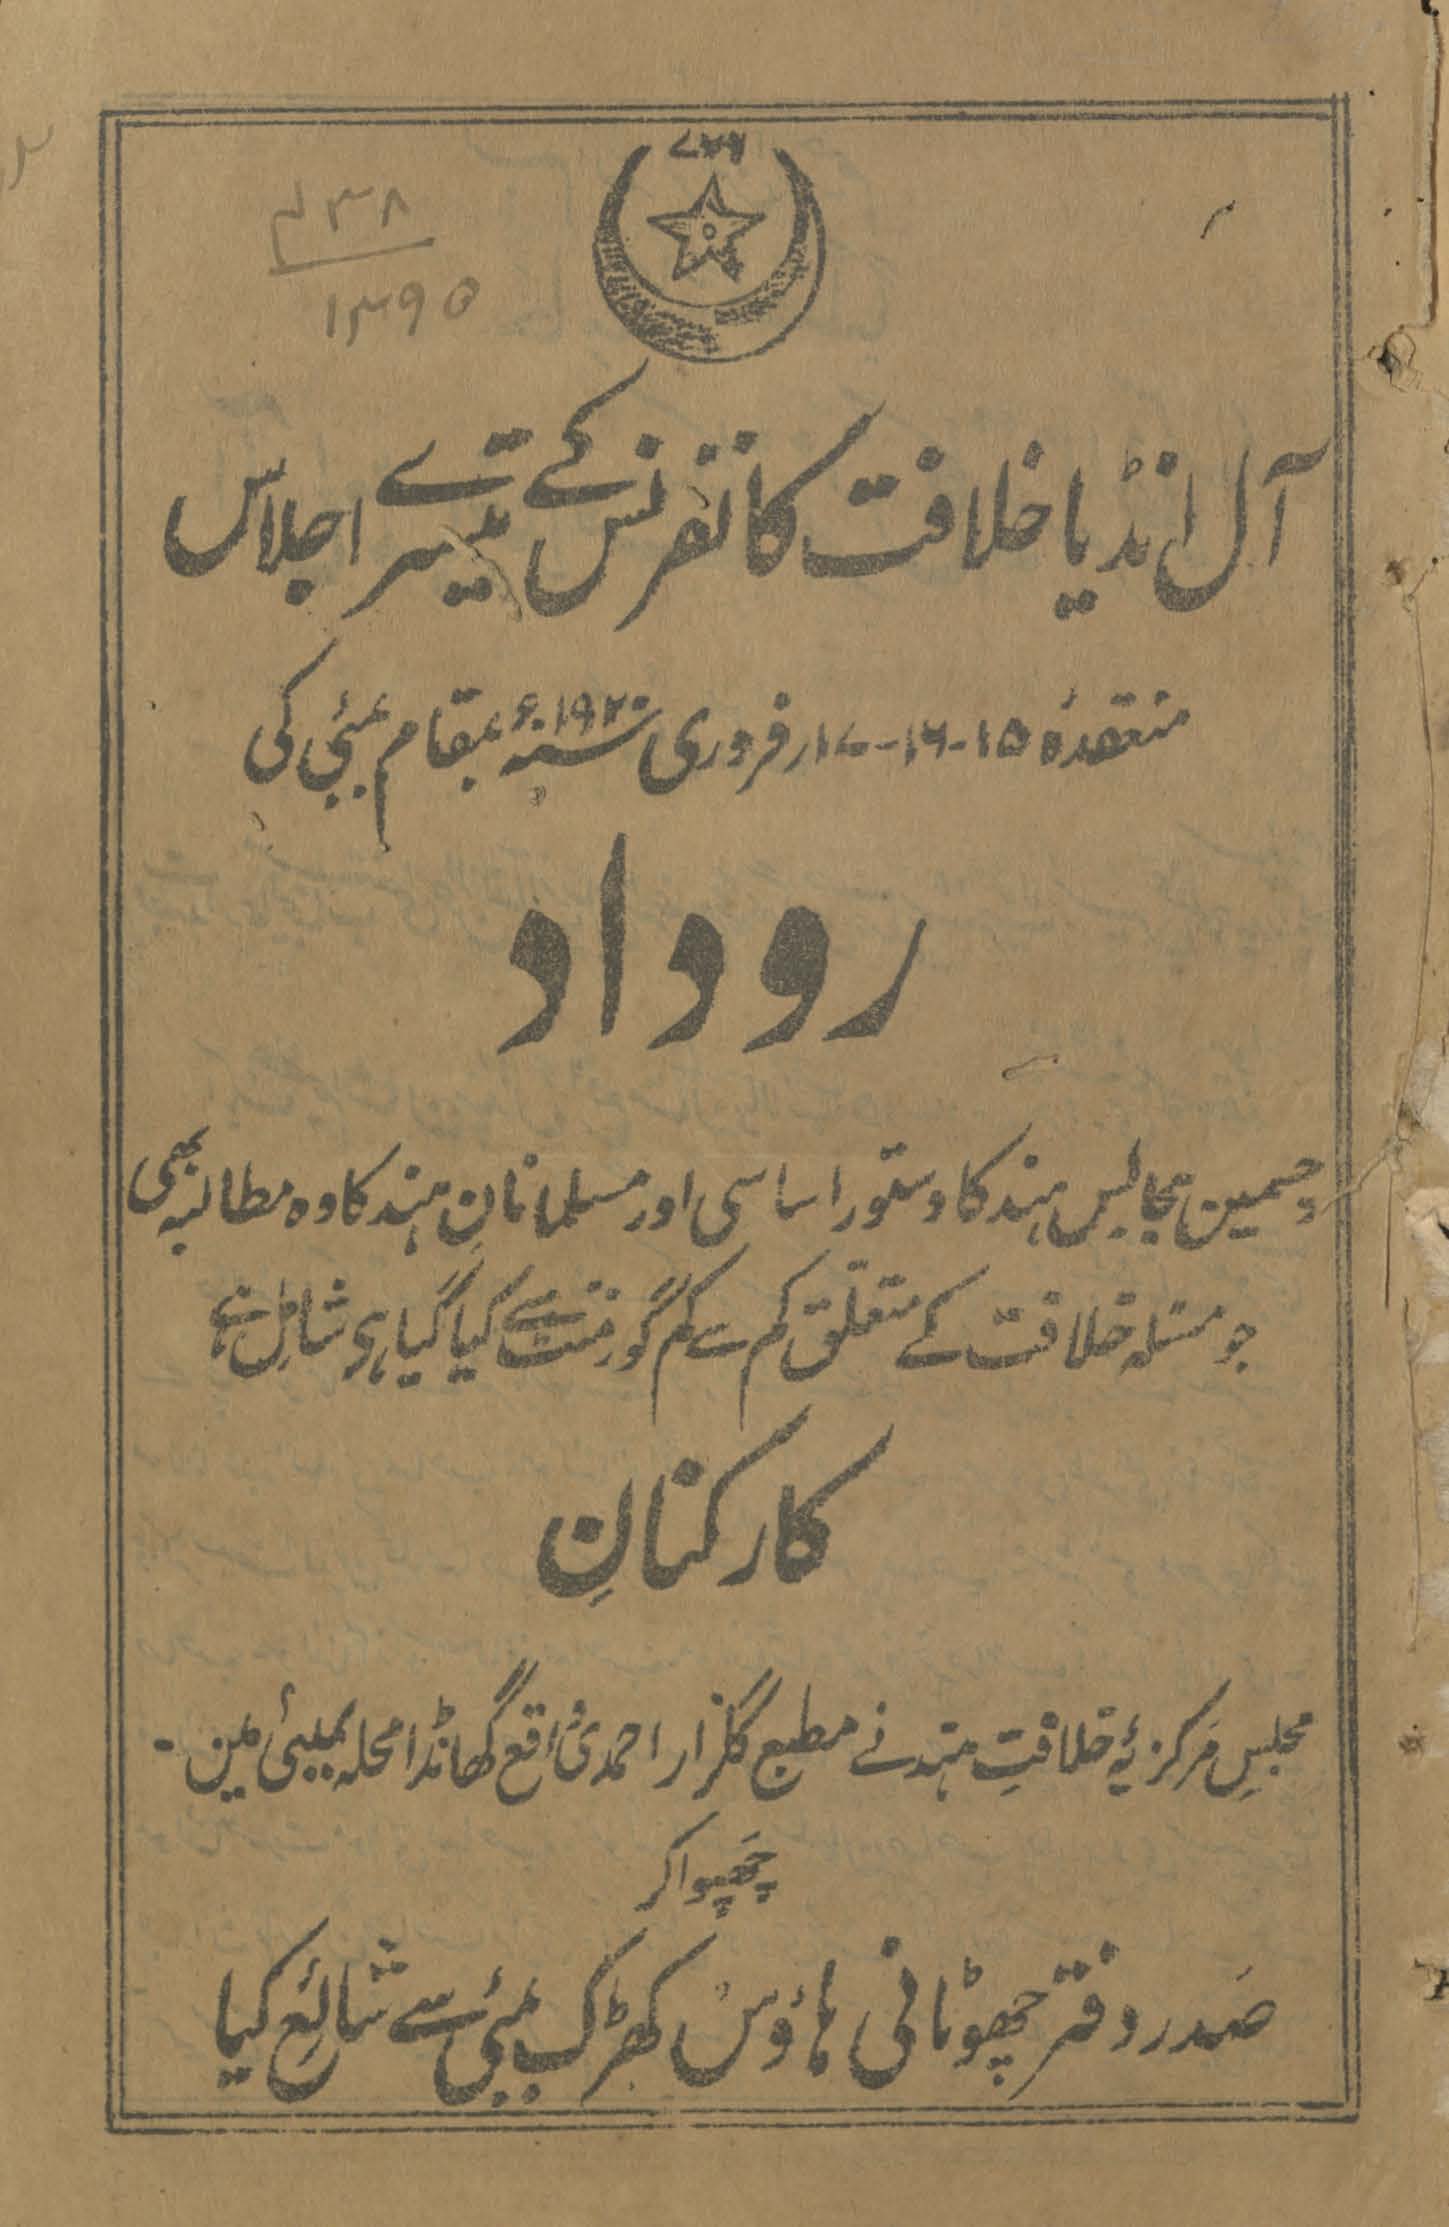 ۷۸۶
۱۳۹۵
آل انڈیا خلافت کانفرنس کے تیسرے اجلاس
منعقدہٗ ۱۵-۱۶-۱۷ر فروری سنہ ۱۹۲۰ء بمقام بمبئی کی
روداد
جسمین مجالس ہند کا دستور اساسی اور مسلمانانِ ہند کا وہ مطالبہ بھی
جو مسئلہ خلافت کے متعلق کم سے کم گورنمنٹ سے کیا گیا ہی شامل ہے
کارکنانِ
مجلسِ مرکزیۂ خلافتِ ہند نے مطبع گلزار احمدی واقع گھانڈا محلہ بمبیئ مین -
چھپوا کر
صدر دفتر چھوٹانی ہاؤس کھڑک بمبئی سے شائع کیا